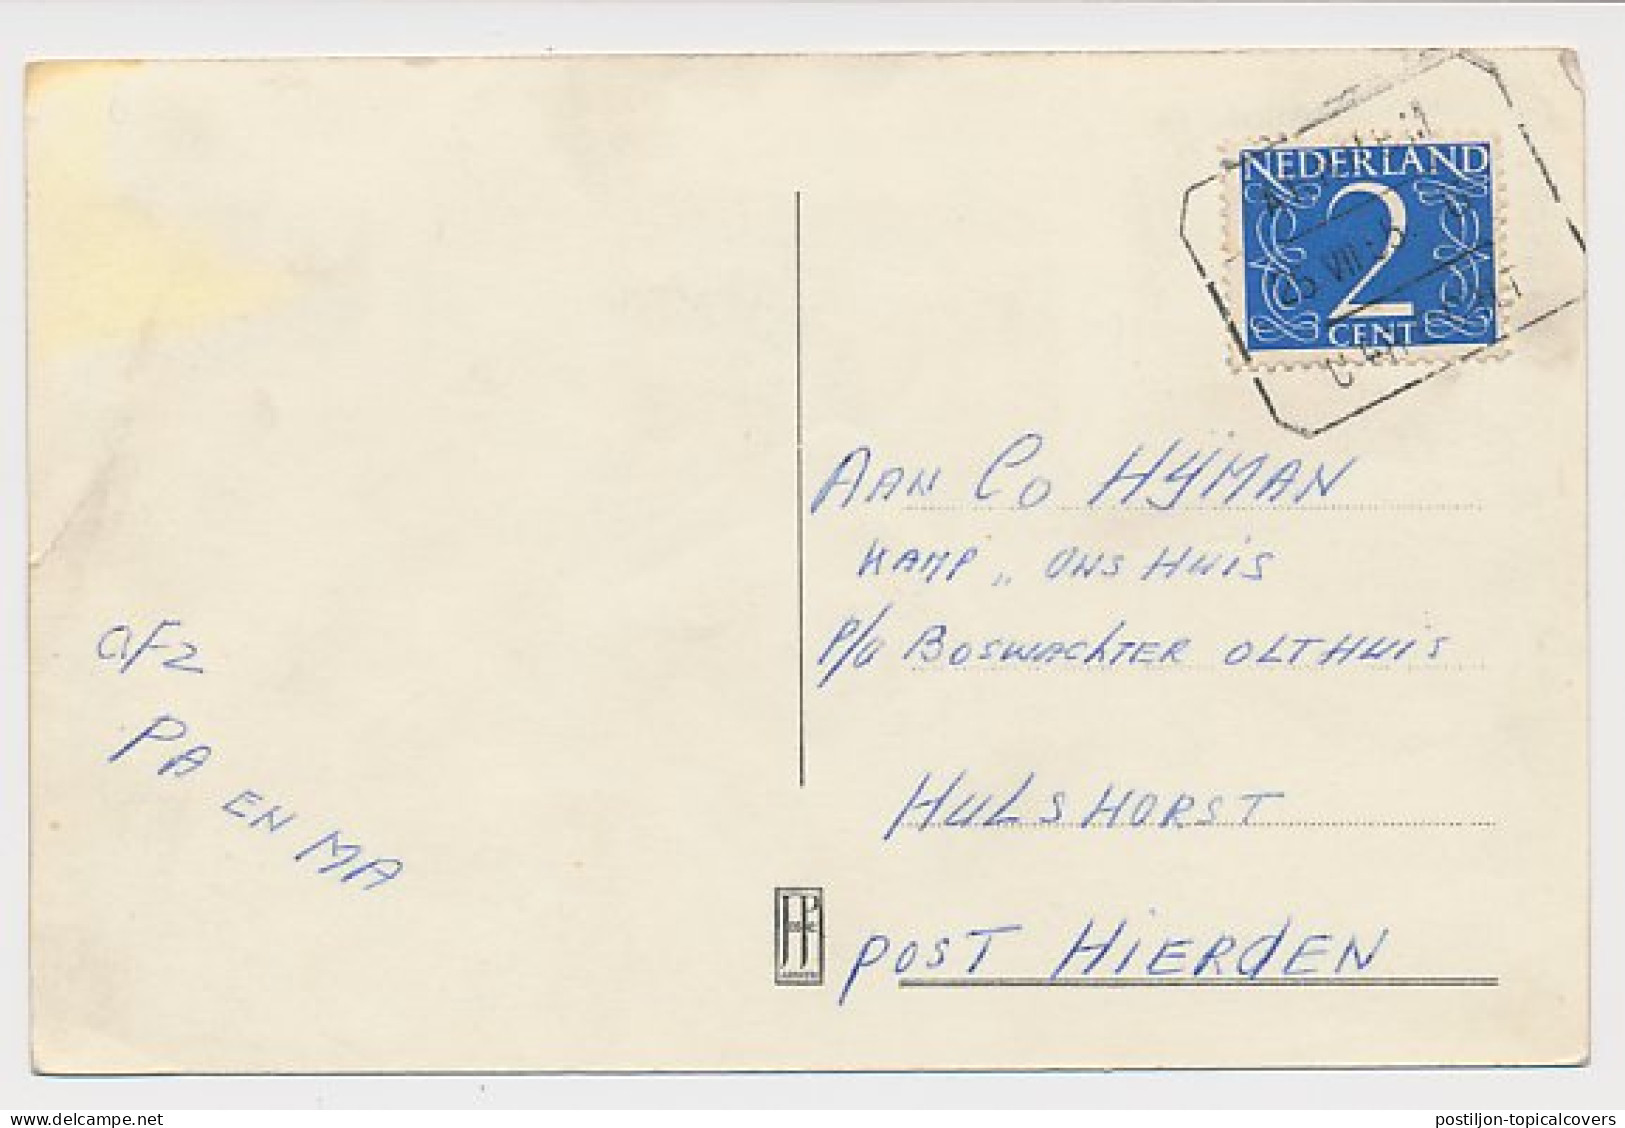 NEDERLAND
2
CENT
VII
AAN CO HYMAN
KAMP „ ONS HUIS
P/A BOSWACHTER OLTHUIS
AFZ
PA EN MA
HULSHORST
POST HIERDEN
delcampe.net
postiljon-topicalcovers